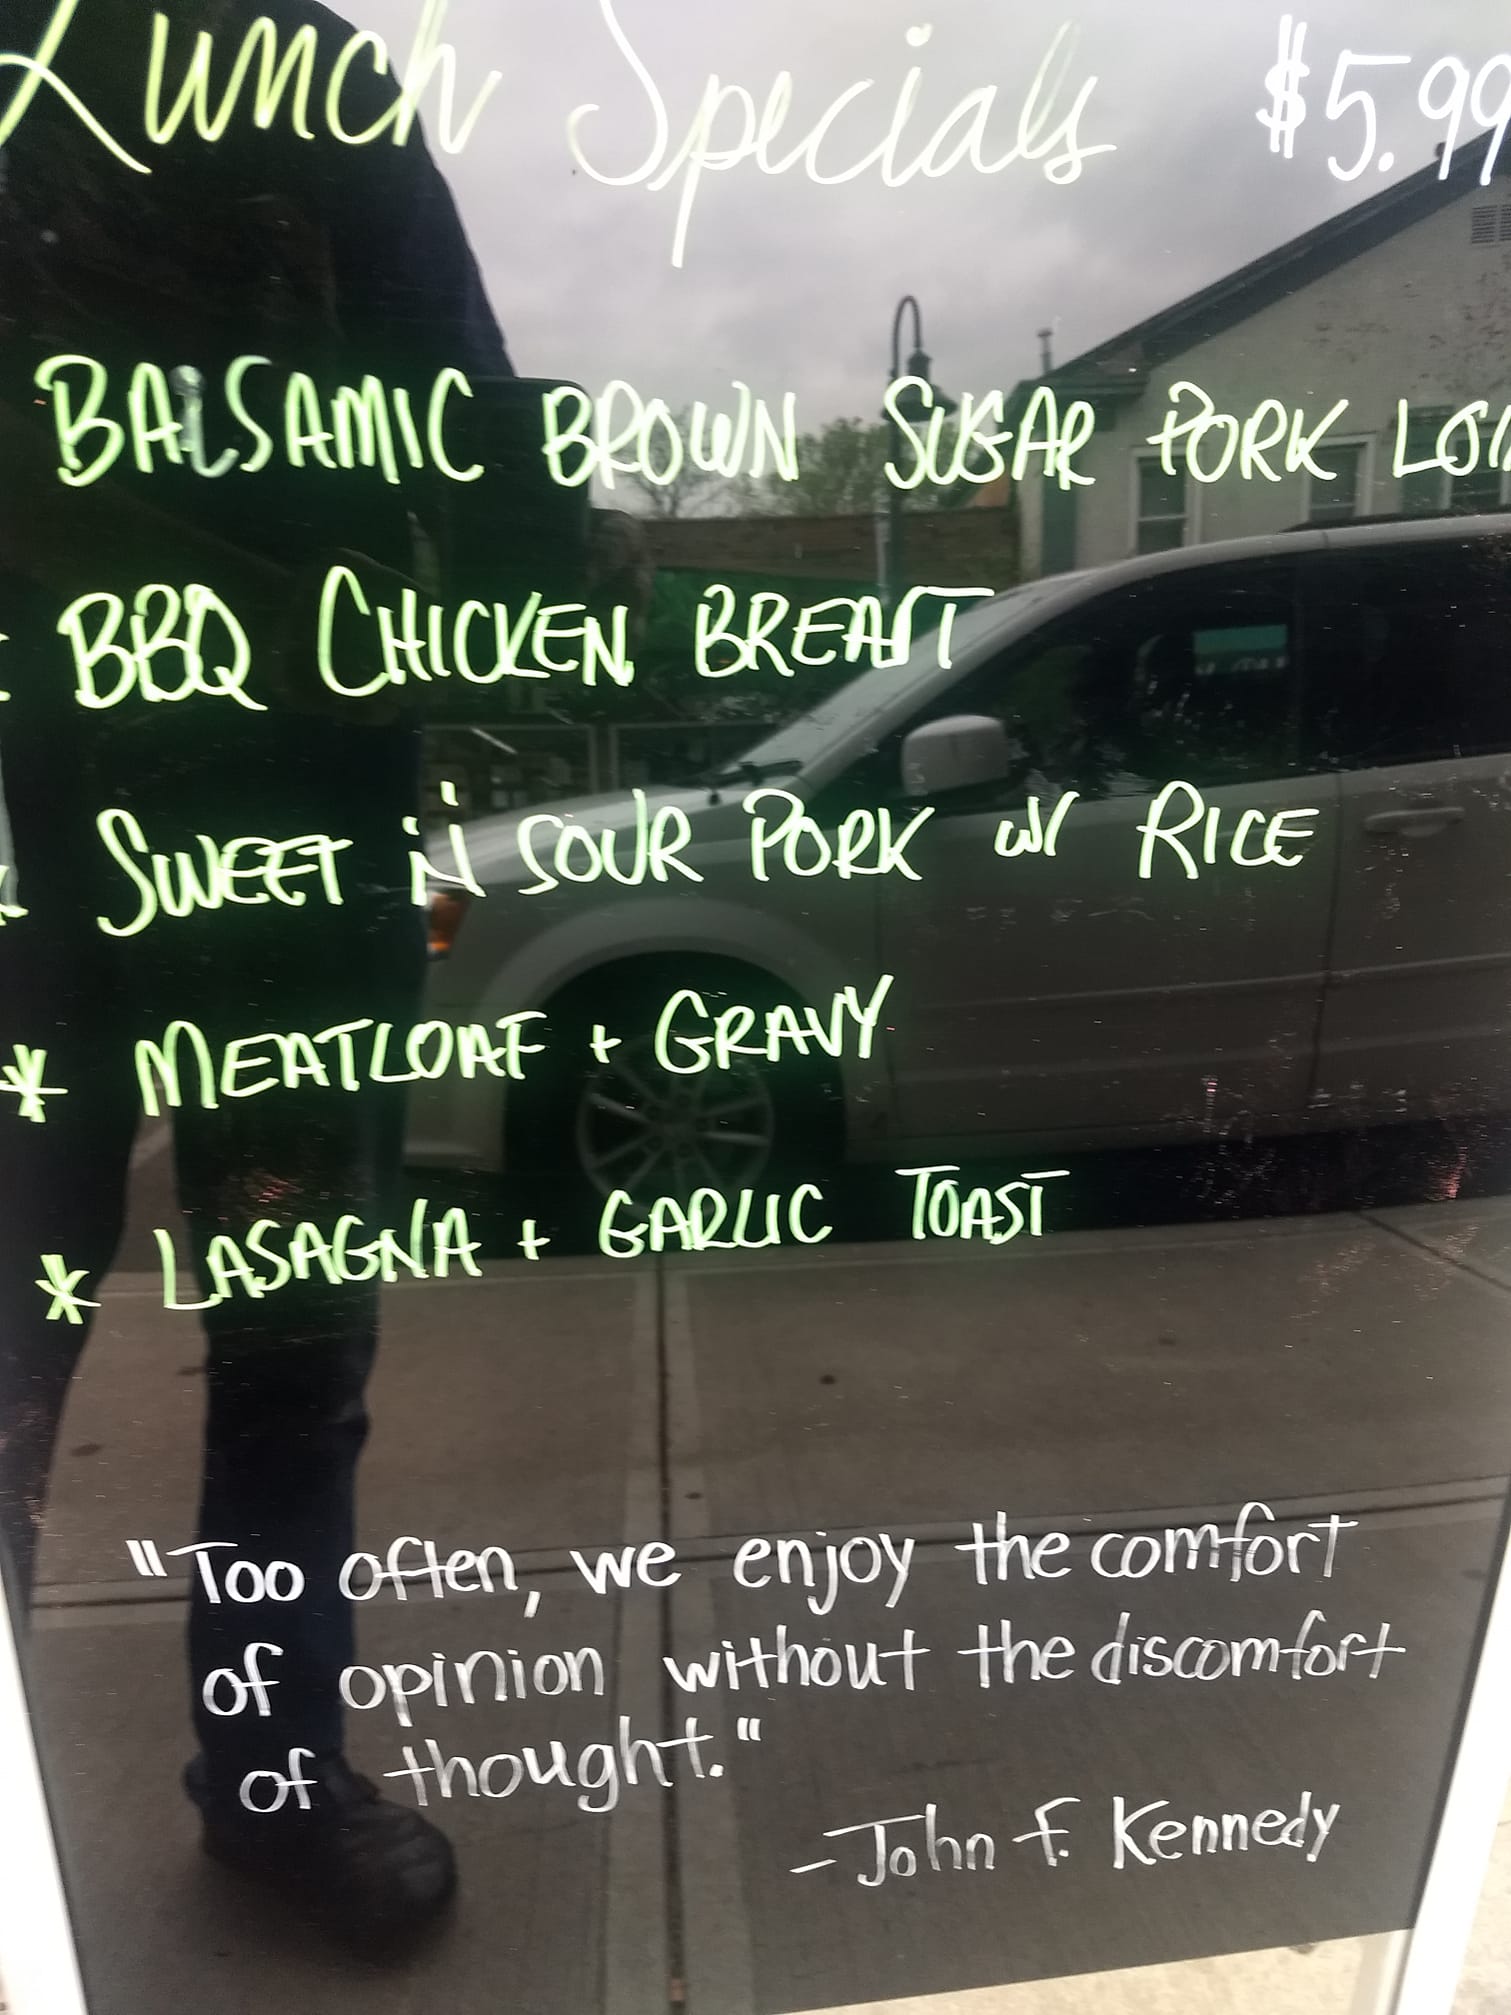 Lunch Specials $5.99
BALSAMIC BROWN SUGAR PORK LOI
* BBQ CHICKEN BREAST
* SWEET N SOUR PORK w/ RICE
* MEATLOAF + GRAVY
* LASAGNA + GARLIC TOAST
"Too often, we enjoy the comfort
of opinion without the discomfort
of thought."
- John F. Kennedy